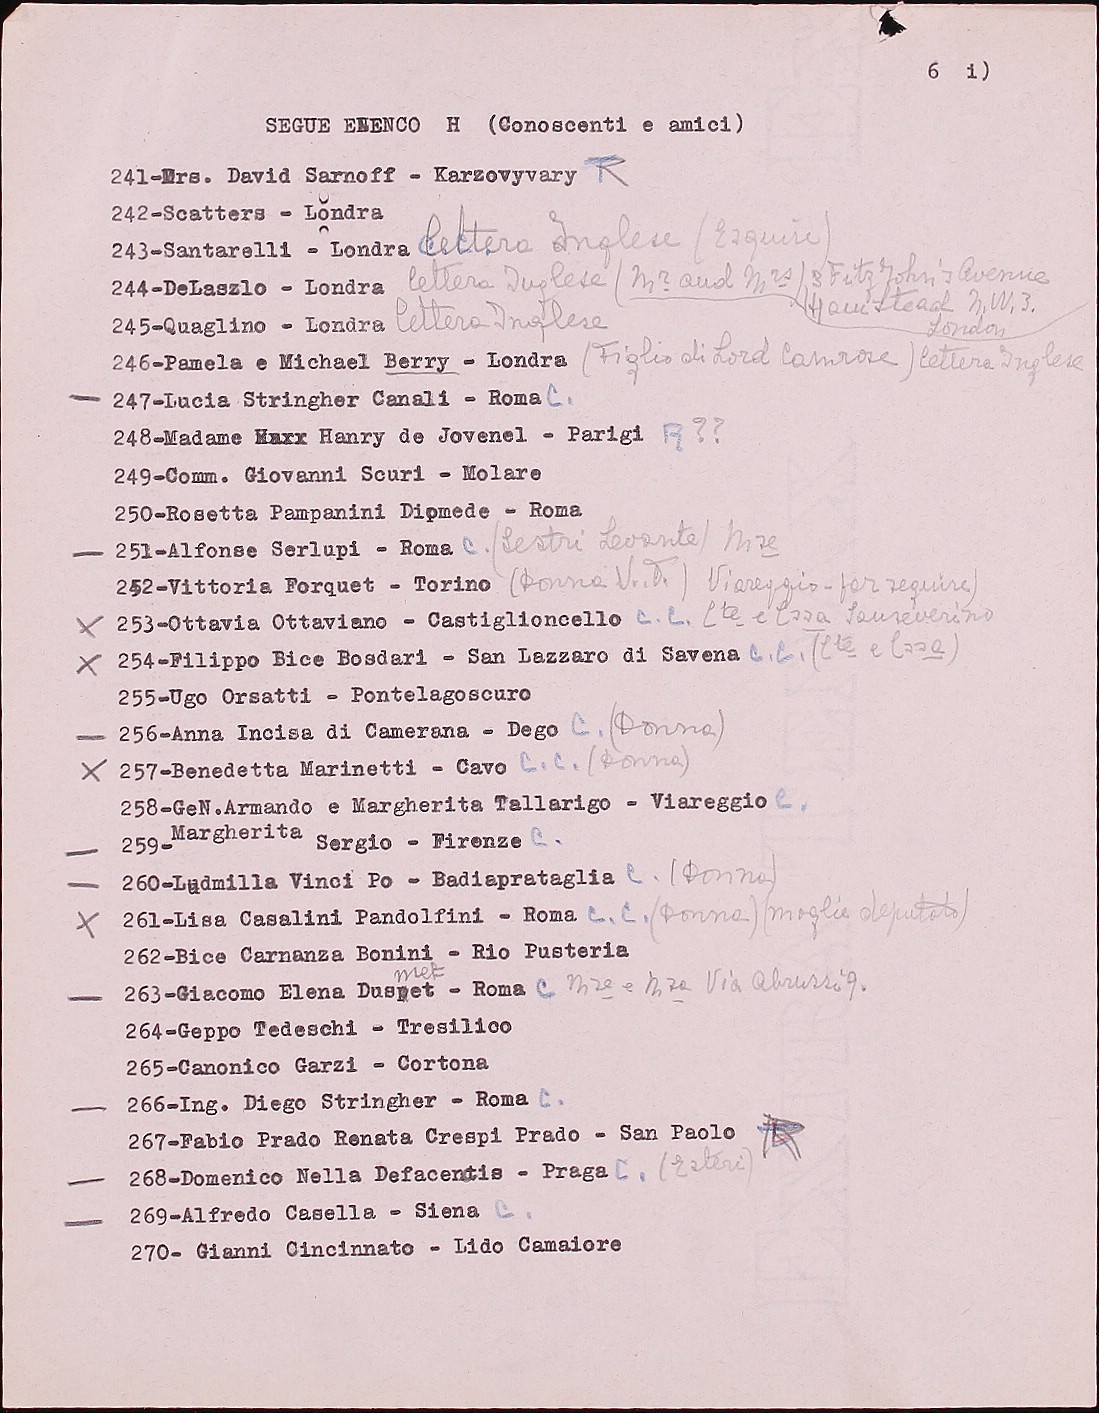 6 i)
SEGUE ELENCO H (Conoscenti e amici)
241-Mrs. David Sarnoff - Karzovyvary R
242-Scatters - Londra
243-Santarelli - Londra lettera Inglese (Esquire)
244-DeLaszlo - Londra lettera Inglese (Mr and Mrs) 3 Fitz John's Avenue
Hamstead N.W.3.
London
245-Quaglino - Londra lettera Inglese
246-Pamela e Michael Berry - Londra (Figlio di Lord Camrose) lettera Inglese
— 247-Lucia Stringher Canali - Roma C.
248-Madame Hanry de Jovenel - Parigi R ??
249-Comm. Giovanni Scuri - Molare
250-Rosetta Pampanini Dipmede - Roma
— 251-Alfonse Serlupi - Roma C. (Sestri Levante) Mse
252-Vittoria Forquet - Torino (Donna V.F.) Viareggio-far seguire)
X 253-Ottavia Ottaviano - Castiglioncello C.C. Cte e Cssa Sanseverino
X 254-Filippo Bice Bosdari - San Lazzaro di Savena C.C. (Cte e Cssa)
255-Ugo Orsatti - Pontelagoscuro
— 256-Anna Incisa di Camerana - Dego C. (Donna)
X 257-Benedetta Marinetti - Cavo C.C. (Donna)
258-GeN.Armando e Margherita Tallarigo - Viareggio C.
— 259-Margherita Sergio - Firenze C.
— 260-Ludmilla Vinci Po - Badiaprataglia C. (Donna)
X 261-Lisa Casalini Pandolfini - Roma C.C. (Donna) (moglie deputato)
262-Bice Carnanza Bonini - Rio Pusteria
— 263-Giacomo Elena Dusmet - Roma C Mse e Msa Via Abruzzi 9.
264-Geppo Tedeschi - Tresilico
265-Canonico Garzi - Cortona
— 266-Ing. Diego Stringher - Roma C.
267-Fabio Prado Renata Crespi Prado - San Paolo R
— 268-Domenico Nella Defacentis - Praga C. (Esteri)
— 269-Alfredo Casella - Siena C.
270- Gianni Cincinnato - Lido Camaiore